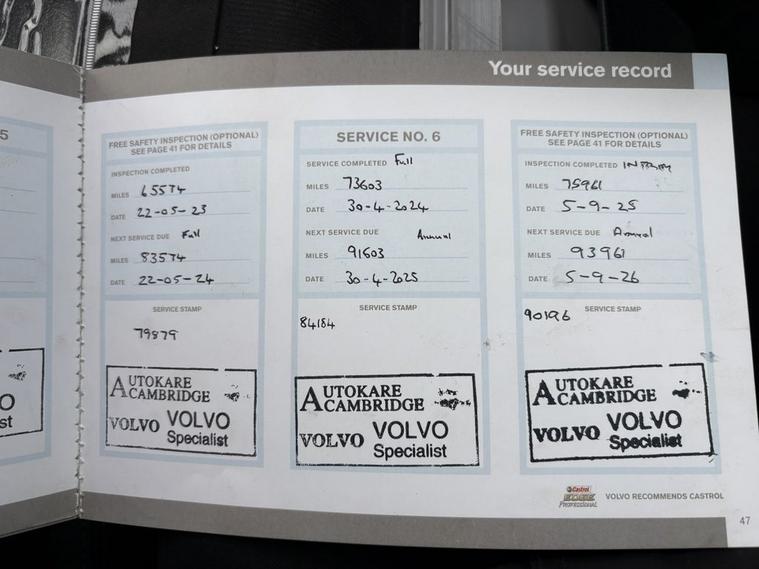 5
Your service record
FREE SAFETY INSPECTION (OPTIONAL)
SEE PAGE 41 FOR DETAILS
INSPECTION COMPLETED
MILES 65574
DATE 22-05-23
NEXT SERVICE DUE Full
MILES 83574
DATE 22-05-24
SERVICE STAMP
79879
AUTOKARE
CAMBRIDGE
VOLVO VOLVO
Specialist
SERVICE NO. 6
SERVICE COMPLETED Full
MILES 73603
DATE 30-4-2024
NEXT SERVICE DUE Annual
MILES 91603
DATE 30-4-2025
SERVICE STAMP
84184
AUTOKARE
CAMBRIDGE
VOLVO VOLVO
Specialist
FREE SAFETY INSPECTION (OPTIONAL)
SEE PAGE 41 FOR DETAILS
INSPECTION COMPLETED
MILES 75961
DATE 5-9-25
NEXT SERVICE DUE Annual
MILES 93961
DATE 5-9-26
SERVICE STAMP
90196
AUTOKARE
CAMBRIDGE
VOLVO VOLVO
Specialist
O
st
Castrol
EDGE
Professional
VOLVO RECOMMENDS CASTROL
47